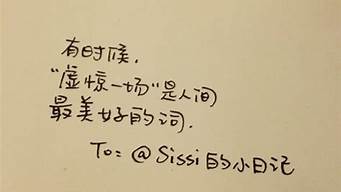 有时候,
“虚惊一场”是人间
最美好的词.
To: @Sissi的小日记